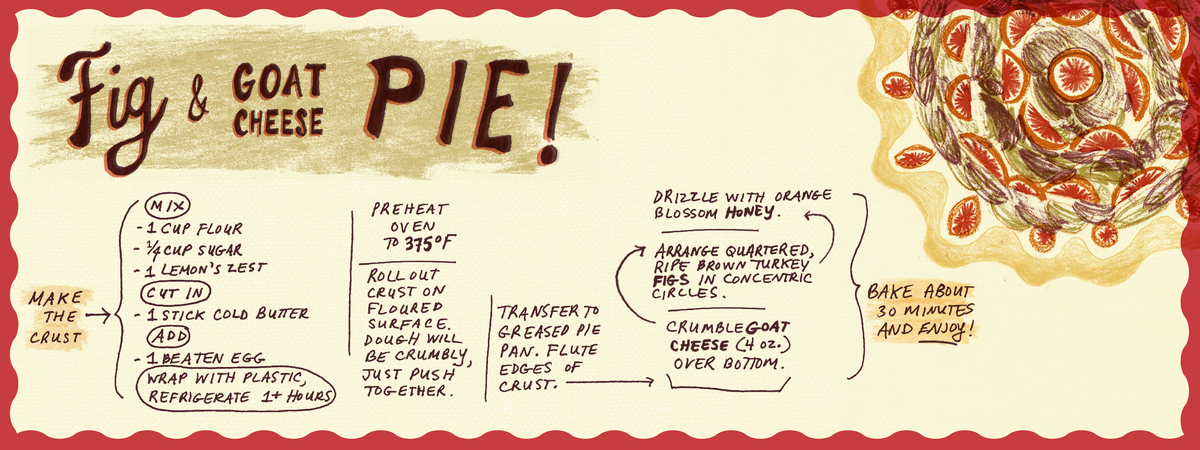 Fig & GOAT CHEESE PIE!
MAKE
THE
CRUST
MIX
- 1 CUP FLOUR
- ¼ CUP SUGAR
- 1 LEMON'S ZEST
CUT IN
- 1 STICK COLD BUTTER
ADD
- 1 BEATEN EGG
WRAP WITH PLASTIC,
REFRIGERATE 1+ HOURS
PREHEAT
OVEN
TO 375°F
ROLL OUT
CRUST ON
FLOURED
SURFACE.
DOUGH WILL
BE CRUMBLY,
JUST PUSH
TOGETHER.
TRANSFER TO
GREASED PIE
PAN. FLUTE
EDGES OF
CRUST.
CRUMBLE GOAT
CHEESE (4 oz.)
OVER BOTTOM.
ARRANGE QUARTERED,
RIPE BROWN TURKEY
FIGS IN CONCENTRIC
CIRCLES.
DRIZZLE WITH ORANGE
BLOSSOM HONEY.
BAKE ABOUT
30 MINUTES
AND ENJOY!